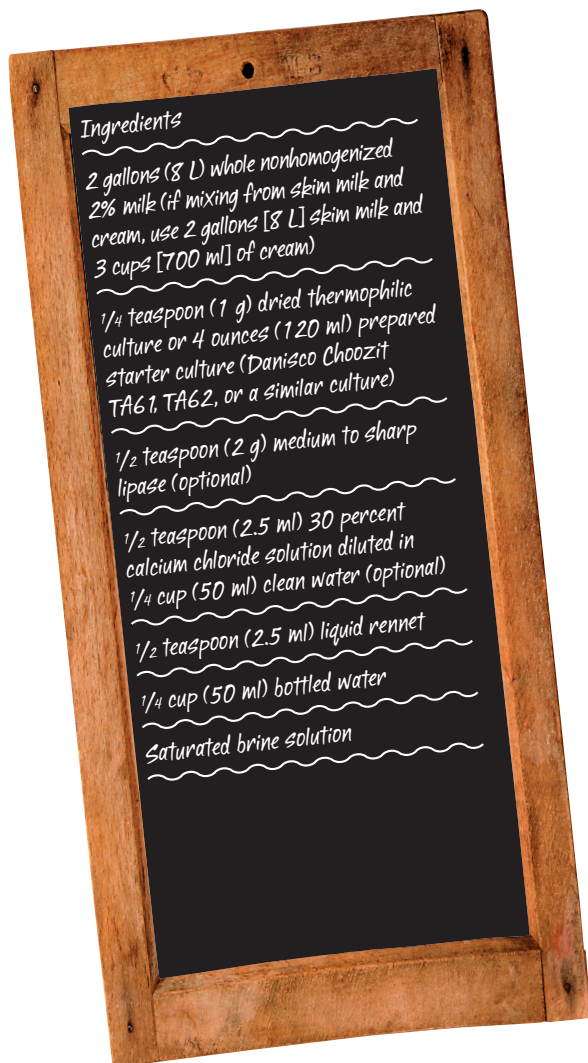 Ingredients
2 gallons (8 L) whole nonhomogenized
2% milk (if mixing from skim milk and
cream, use 2 gallons [8 L] skim milk and
3 cups [700 ml] of cream)
1/4 teaspoon (1 g) dried thermophilic
culture or 4 ounces (120 ml) prepared
starter culture (Danisco Choozit
TA61, TA62, or a similar culture)
1/2 teaspoon (2 g) medium to sharp
lipase (optional)
1/2 teaspoon (2.5 ml) 30 percent
calcium chloride solution diluted in
1/4 cup (50 ml) clean water (optional)
1/2 teaspoon (2.5 ml) liquid rennet
1/4 cup (50 ml) bottled water
Saturated brine solution